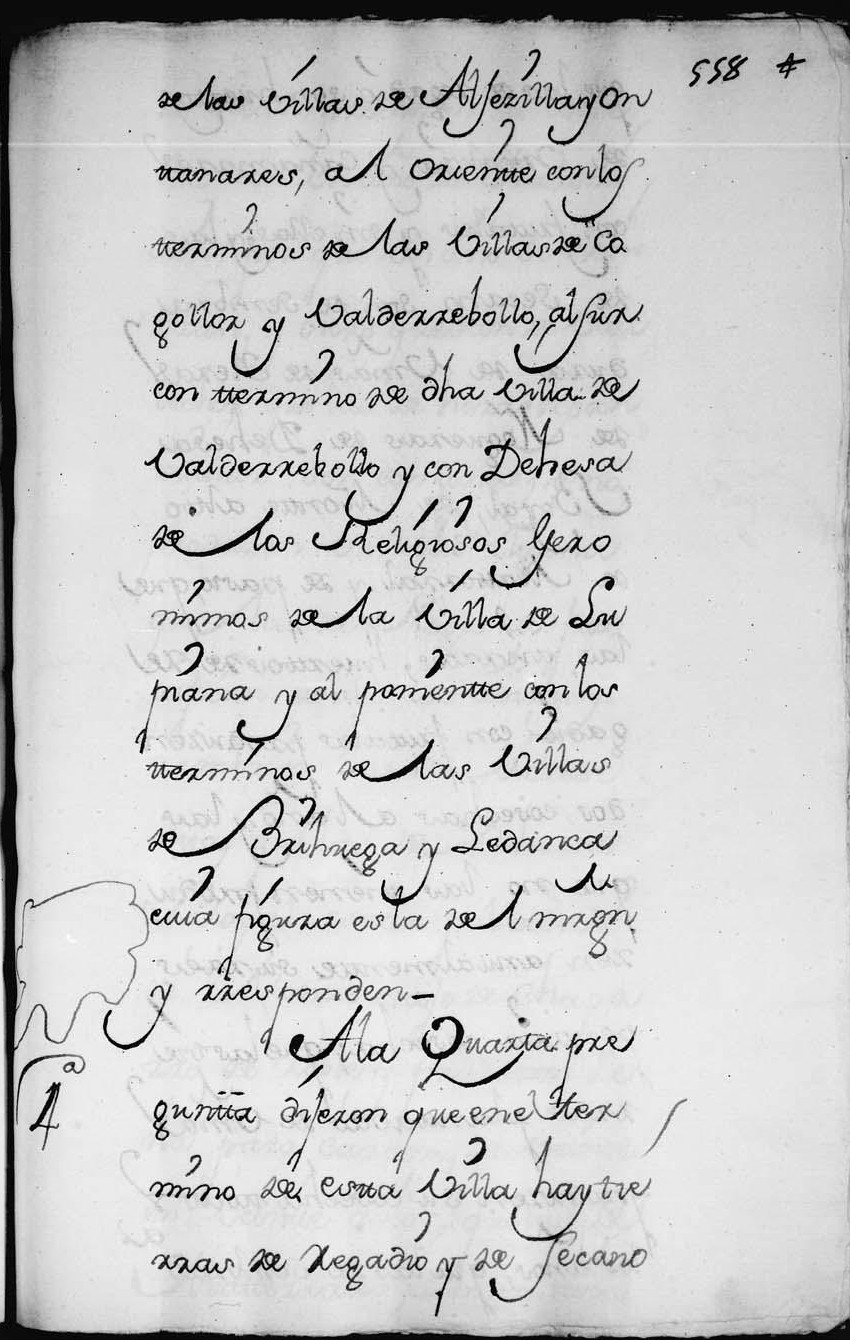 558 #
de las Villas de Alfezilla y On
ttanares, al Oriente con los
tterminos de las Villas de Co
gollor y Valderrebollo, al Sur
con ttermino de dha Villa de
Valderrebollo y con Dehesa
de los Religiosos Gero
nimos de la Villa de Lu
piana y al ponientte con los
tterminos de las Villas
de Brihuega y Ledanca
cuia figura es la de el mrgn
y rresponden–
4ª
A la Quarta pre
guntta dijeron que en el tter
mino de estta Villa hay tie
rras de Regadio y de Secano